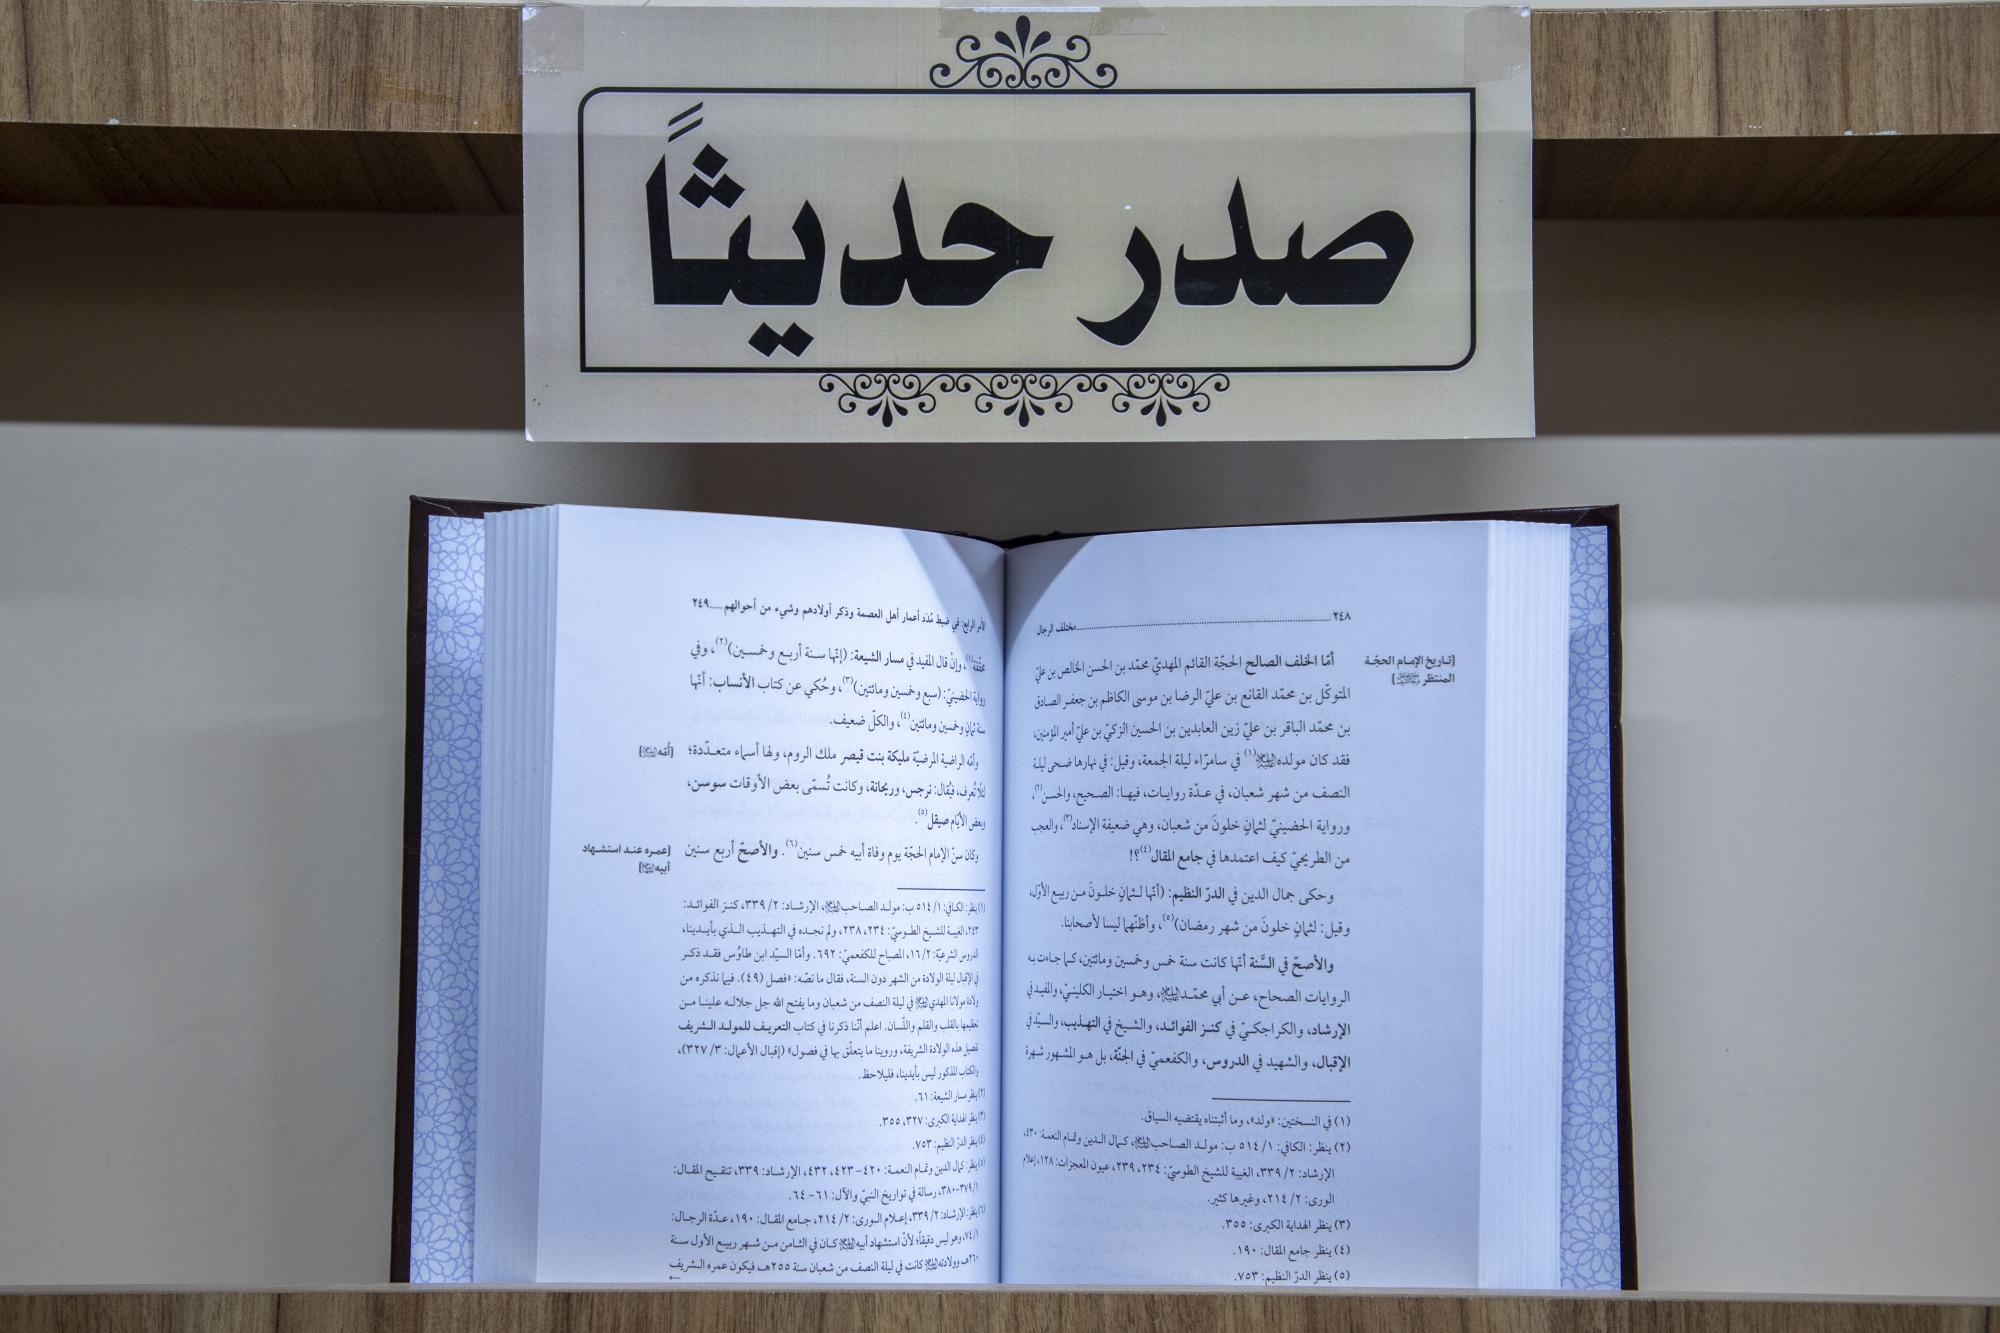 صدر حديثاً
٢٤٨ ........ مختلف الرجال
[تاريخ الإمام الحجّة
المنتظر]
أمّا الخلف الصالح الحجّة القائم المهديّ محمّد بن الحسن الخالص بن عليّ
المتوكّل بن محمّد القانع بن عليّ الرضا بن موسى الكاظم بن جعفر الصادق
بن محمّد الباقر بن عليّ زين العابدين بن الحسين الزكيّ بن عليّ أمير المؤمنين،
فقد كان مولده(١) في سامرّاء ليلة الجمعة، وقيل: في نهارها ضحى ليلة
النصف من شهر شعبان، في عدّة روايات، فيها: الصحيح، والحسن(٢)،
ورواية الحضينيّ لثمانٍ خلونَ من شعبان، وهي ضعيفة الإسناد(٣)، والعجب
من الطريحيّ كيف اعتمدها في جامع المقال(٤)؟!
وحكى جمال الدين في الدرّ النظيم: (أنّها لـثمانٍ خلونَ مـن ربيـع الأوّل،
وقيل: لثمانٍ خلونَ من شهر رمضان)(٥)، وأظنّهما ليسا لأصحابنا.
والأصحّ في السَّنة أنّها كانت سنة خمس وخمسين ومائتين، كـما جاءت بـه
الروايات الصحاح، عـن أبي محمّـد، وهـو اختيـار الكلينـيّ، والمفيد في
الإرشاد، والكراجكـيّ في كنـز الفوائـد، والشيخ في التهذيب، والسيّد في
الإقبال، والشهيد في الدروس، والكفعميّ في الجنّة، بل هـو المشهور شهرة
(١) في النسختين: «ولد»، وما أثبتناه يقتضيه السياق.
(٢) ينظر: الكافي: ١/ ٥١٤ ب: مولـد الصـاحب، كـمال الـدين وتمام النعمـة: ٤٣٠،
الإرشاد: ٢/ ٣٣٩، الغيبة للشيخ الطوسيّ: ٢٣٤، ٢٣٩، عيون المعجزات: ١٢٨، إعلام
الورى: ٢/ ٢١٤، وغيرها كثير.
(٣) ينظر الهداية الكبرى: ٣٥٥.
(٤) ينظر جامع المقال: ١٩٠.
(٥) ينظر الدرّ النظيم: ٧٥٣.
الأمر الرابع: في ضبط مُدَد أعمار أهل العصمة وذكر أولادهم وشيء من أحوالهم .....٢٤٩
محقّقة(١)، وإنْ قال المفيد في مسار الشيعة: (إنّها سـنة أربـع وخمسـين)(٢)، وفي
رواية الحضينيّ: (سبع وخمسين ومائتين)(٣)، وحُكي عن كتاب الأنساب: أنّها
سنة ثمانٍ وخمسين ومائتين(٤)، والكلّ ضعيف.
[أُمّه]
وأمّه الراضية المرضيّة مليكة بنت قيصر ملك الروم، ولها أسماء متعـدّدة؛
لئلّا تُعرف، فيُقال: نرجس، وريحانة، وكانت تُسمّى بعض الأوقات سوسن،
وبعض الأيّام صيقل(٥).
[عمـره عنـد استشـهاد
أبيه]
وكان سنّ الإمام الحجّة يوم وفاة أبيه خمس سنين(٦). والأصحّ أربع سنين
(١) ينظر: الكافي: ١/ ٥١٤ ب: مولـد الصـاحب، الإرشـاد: ٢/ ٣٣٩، كنـز الفوائـد:
٢٤٣، الغيبة للشيخ الطوسيّ: ٢٣٤، ٢٣٨، ولم نجـده في التهـذيب الـذي بأيـدينا،
الدروس الشرعيّة: ٢/ ١٦، المصباح للكفعميّ: ٦٩٢. وأمّا السيّد ابن طاوُس فقـد ذكـر
في الإقبال ليلة الولادة من الشهر دون السنة، فقال ما نصّه: «فصل (٤٩). فيما نذكره من
ولادة مولانا المهدي في ليلة النصف من شعبان وما يفتح الله جل جلالـه علينـا مـن
تعظيمها بالقلب والقلم واللّسان. اعلم أنّنا ذكرنا في كتاب التعريـف للمولـد الـشريف
تفصيل هذه الولادة الشريفة، وروينا ما يتعلّق بها في فصول» (إقبال الأعمال: ٣/ ٣٢٧)،
والكتاب المذكور ليس بأيدينا، فليلاحظ.
(٢) ينظر مسار الشيعة: ٦١.
(٣) ينظر الهداية الكبرى: ٣٢٧، ٣٥٥.
(٤) ينظر الدرّ النظيم: ٧٥٣.
(٥) ينظر: كمال الدين وتمام النعمة: ٤٢٠- ٤٢٣، ٤٣٢، الإرشاد: ٣٣٩، تنقيح المقال:
١/ ٣٧٩-٣٨٠، رسالة في تواريخ النبيّ والآل: ٦١- ٦٤.
(٦) ينظر: الإرشاد: ٢/ ٣٣٩، إعلام الـورى: ٢/ ٢١٤، جامع المقال: ١٩٠، عـدّة الرجال:
١/ ٧٤، وهو ليس دقيقاً؛ لأنّ استشهاد أبيه كـان في الثـامن مـن شـهر ربيـع الأول سـنة
٢٦٠هـ وولادته كانت في ليلة النصف من شعبان سنة ٢٥٥هـ، فيكون عمره الـشريف